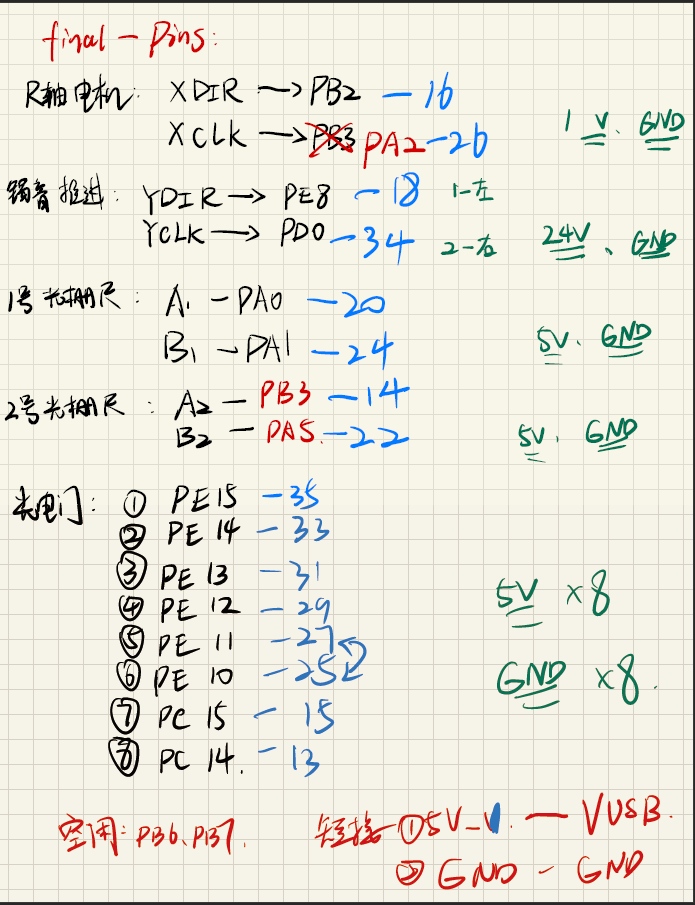 final - Pins:
R轴电机: XDIR → PB2 - 16
XCLK → PB3 PA2 - 26
1 V、GND
推进: YDIR → PE8 - 18 1-左
YCLK → PD0 - 34 2-右 24V、GND
1号光栅尺: A1 - PA0 - 20
B1 - PA1 - 24
5V、GND
2号光栅尺: A2 - PB3 - 14
B2 - PA5 - 22
5V、GND
光电门: ① PE15 - 35
② PE 14 - 33
③ PE 13 - 31
④ PE 12 - 29
5V ×8
⑤ PE 11 - 27
⑥ PE 10 - 25
GND ×8.
⑦ PC 15 - 15
⑧ PC 14. - 13
空闲: PB6、PB7.
短接 - ① 5V_V. — VUSB.
② GND - GND